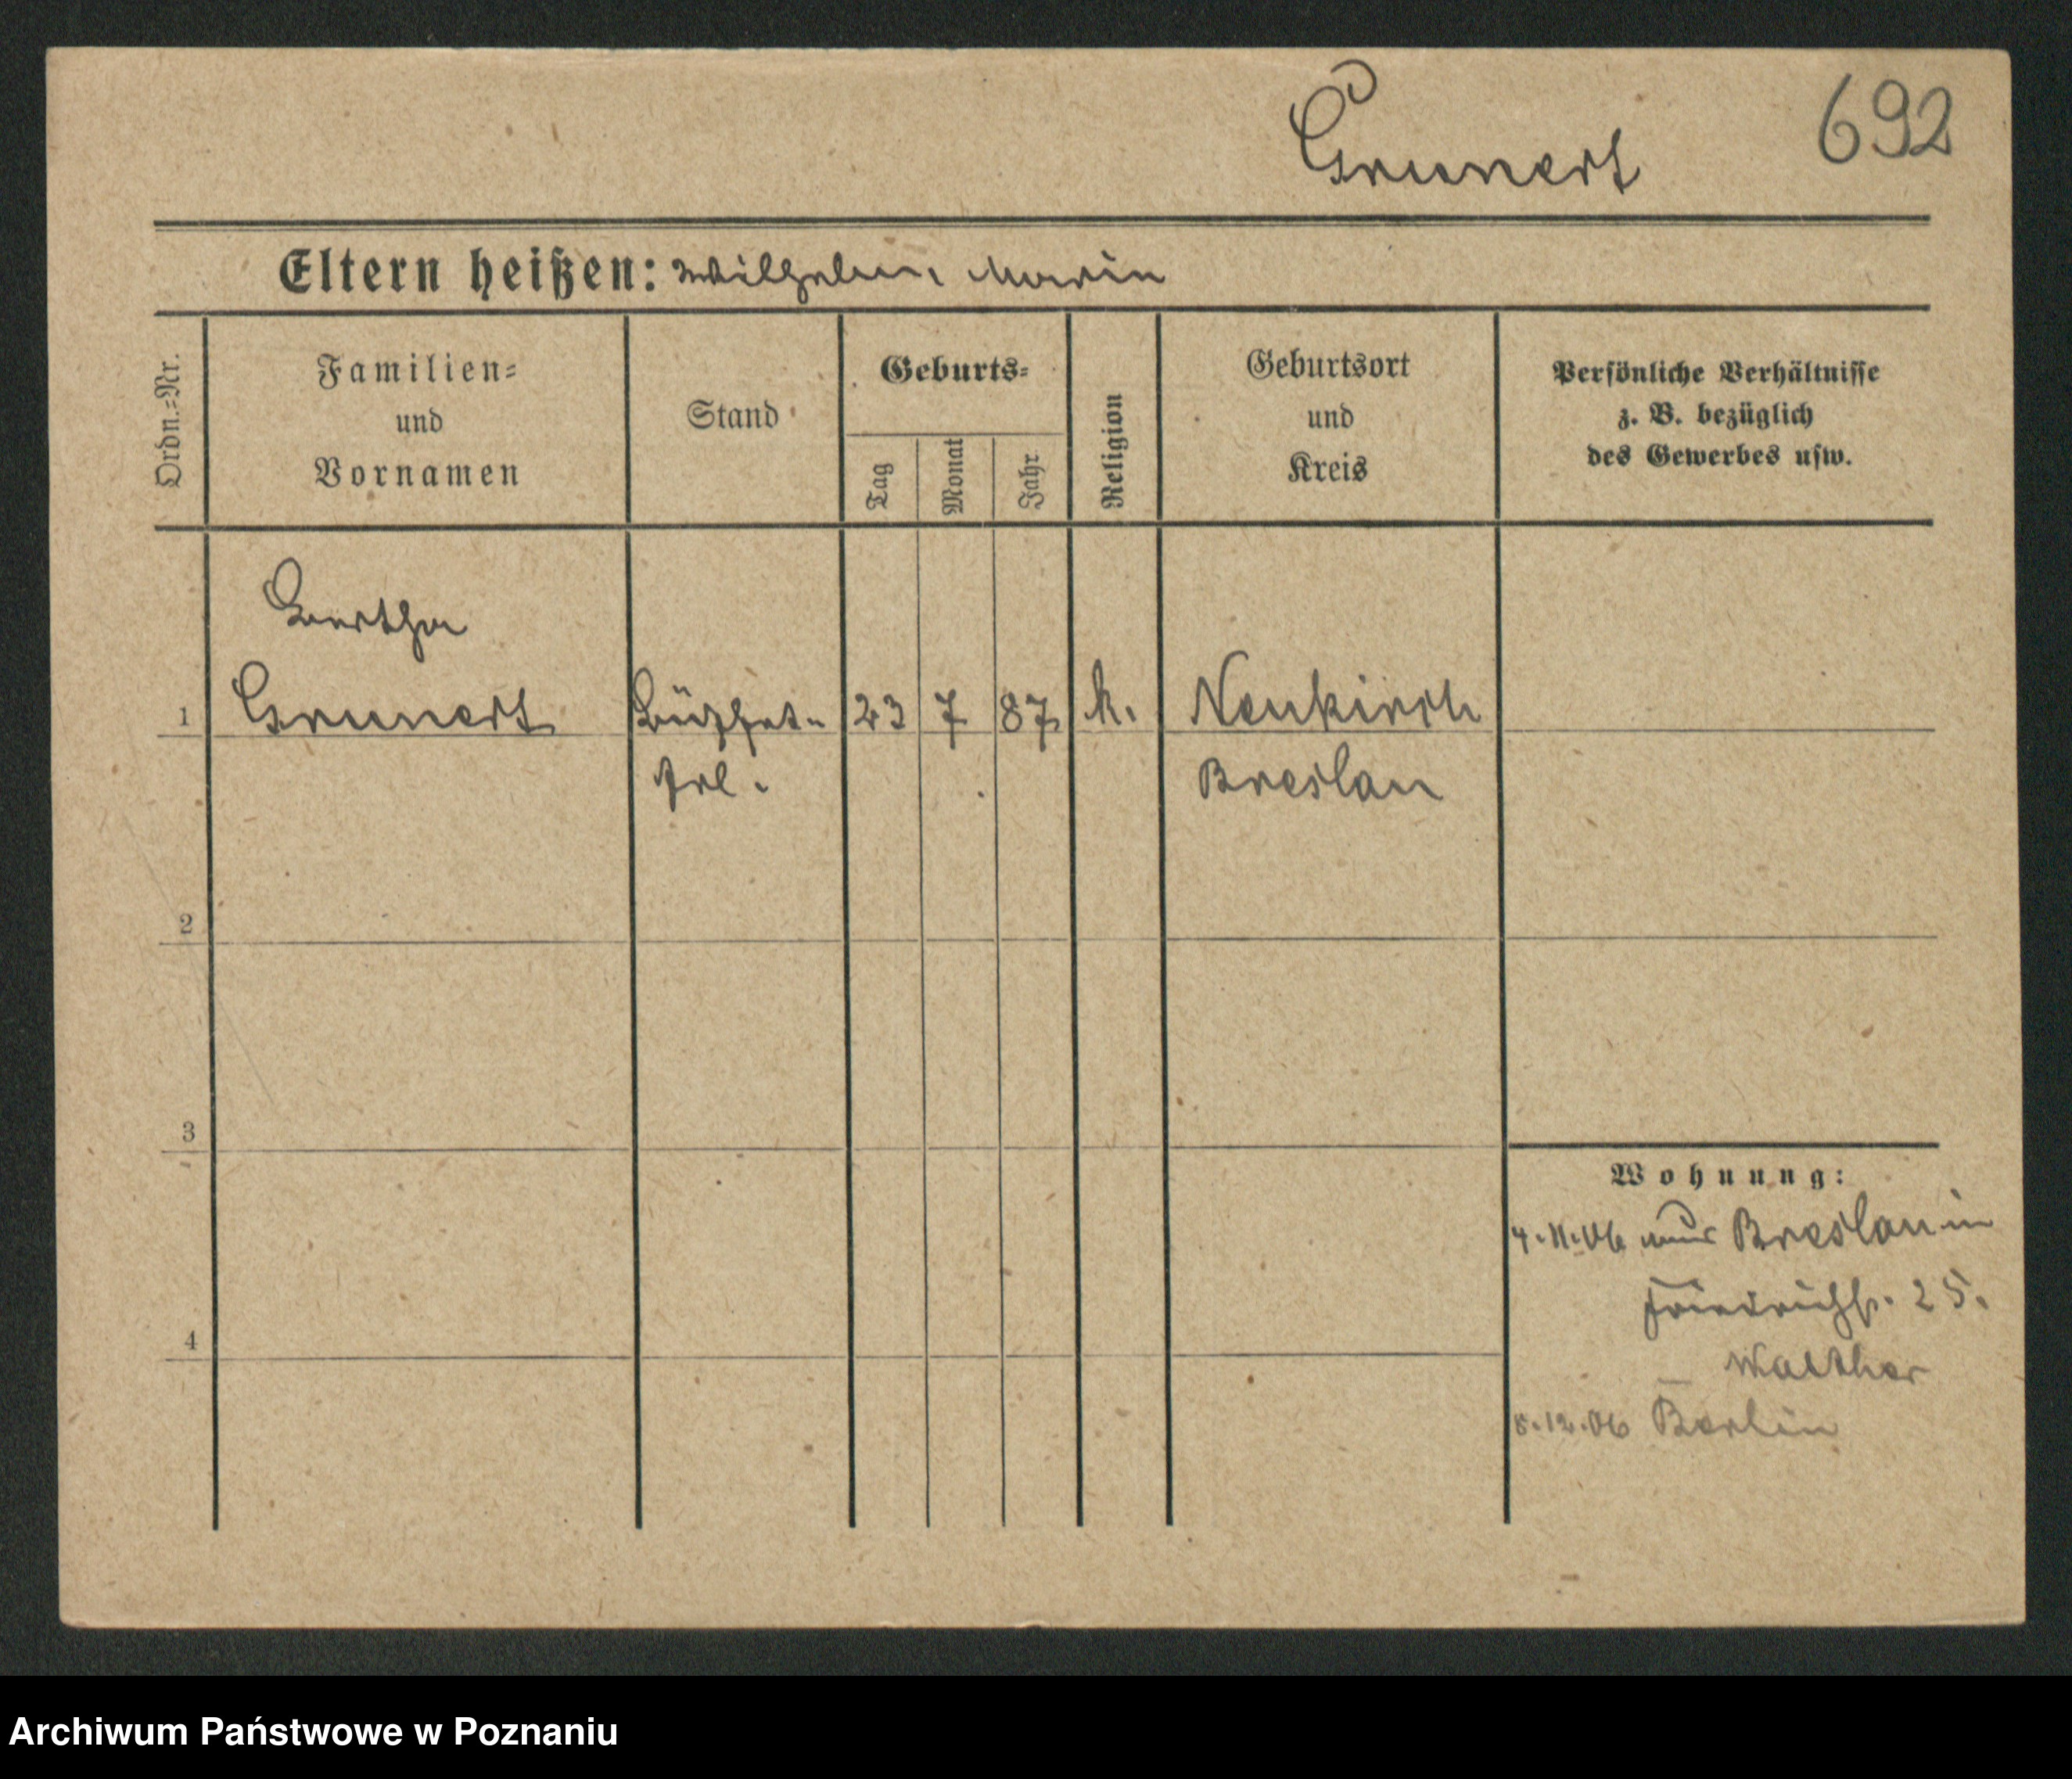 Grunert
692
Eltern heißen: Wilhelm, Marie
Ordn.=Nr.
Familien=
und
Vornamen
Stand
Geburts=
Tag
Monat
Jahr
Religion
Geburtsort
und
Kreis
Persönliche Verhältnisse
z. B. bezüglich
des Gewerbes usw.
Bertha
1 Grunert Büffet- 23 7 87 k. Neukirch
Frl. Breslau
2
3
4
Wohnung:
4.11.06 aus Breslau in
Friedrichstr. 25.
Walther
5.12.06 Berlin
Archiwum Państwowe w Poznaniu